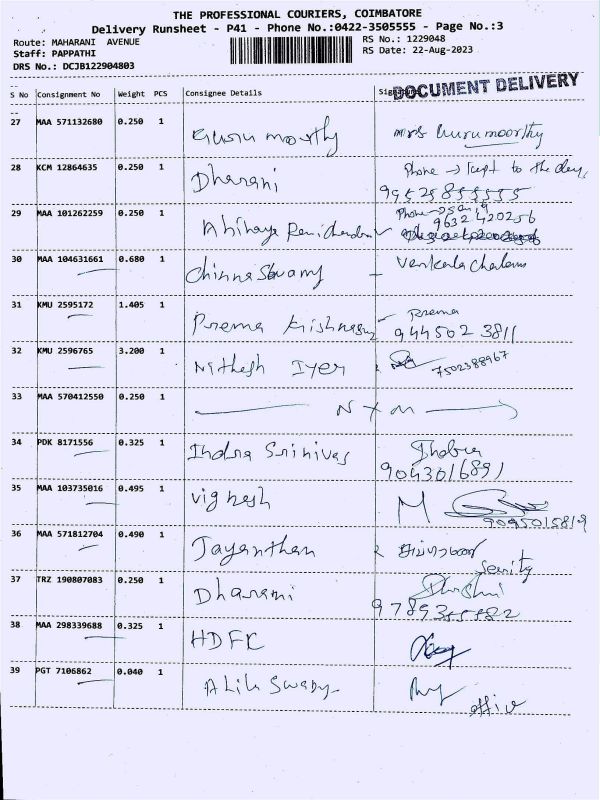 THE PROFESSIONAL COURIERS, COIMBATORE
Delivery Runsheet - P41 - Phone No.:0422-3505555 - Page No.:3
Route: MAHARANI AVENUE
RS No.: 1229048
Staff: PAPPATHI
RS Date: 22-Aug-2023
DRS No.: DCJB122904803
DOCUMENT DELIVERY
S No Consignment No Weight PCS Consignee Details
27 MAA 571132680 0.250 1 Guru moorthy Mrs Gurumoorthy
28 KCM 12864635 0.250 1 Dharani Phone → kept to the
29 MAA 101262259 0.250 1 Phone
9632420256
30 MAA 104631661 0.680 1 Chinna Swamy Venkatachalam
31 KMU 2595172 1.405 1 Prema Krishnasamy Prema
944502 3811
32 KMU 2596765 3.200 1 Nithesh Iyer
7502388967
33 MAA 570412550 0.250 1
34 PDK 8171556 0.325 1 Indra Srinivas
9043016891
35 MAA 103735016 0.495 1 Vignesh
9095015819
36 MAA 571812704 0.490 1 Jayanthan
37 TRZ 190807083 0.250 1 Dharani
38 MAA 298339688 0.325 1 HDFC
39 PGT 7106862 0.040 1
office